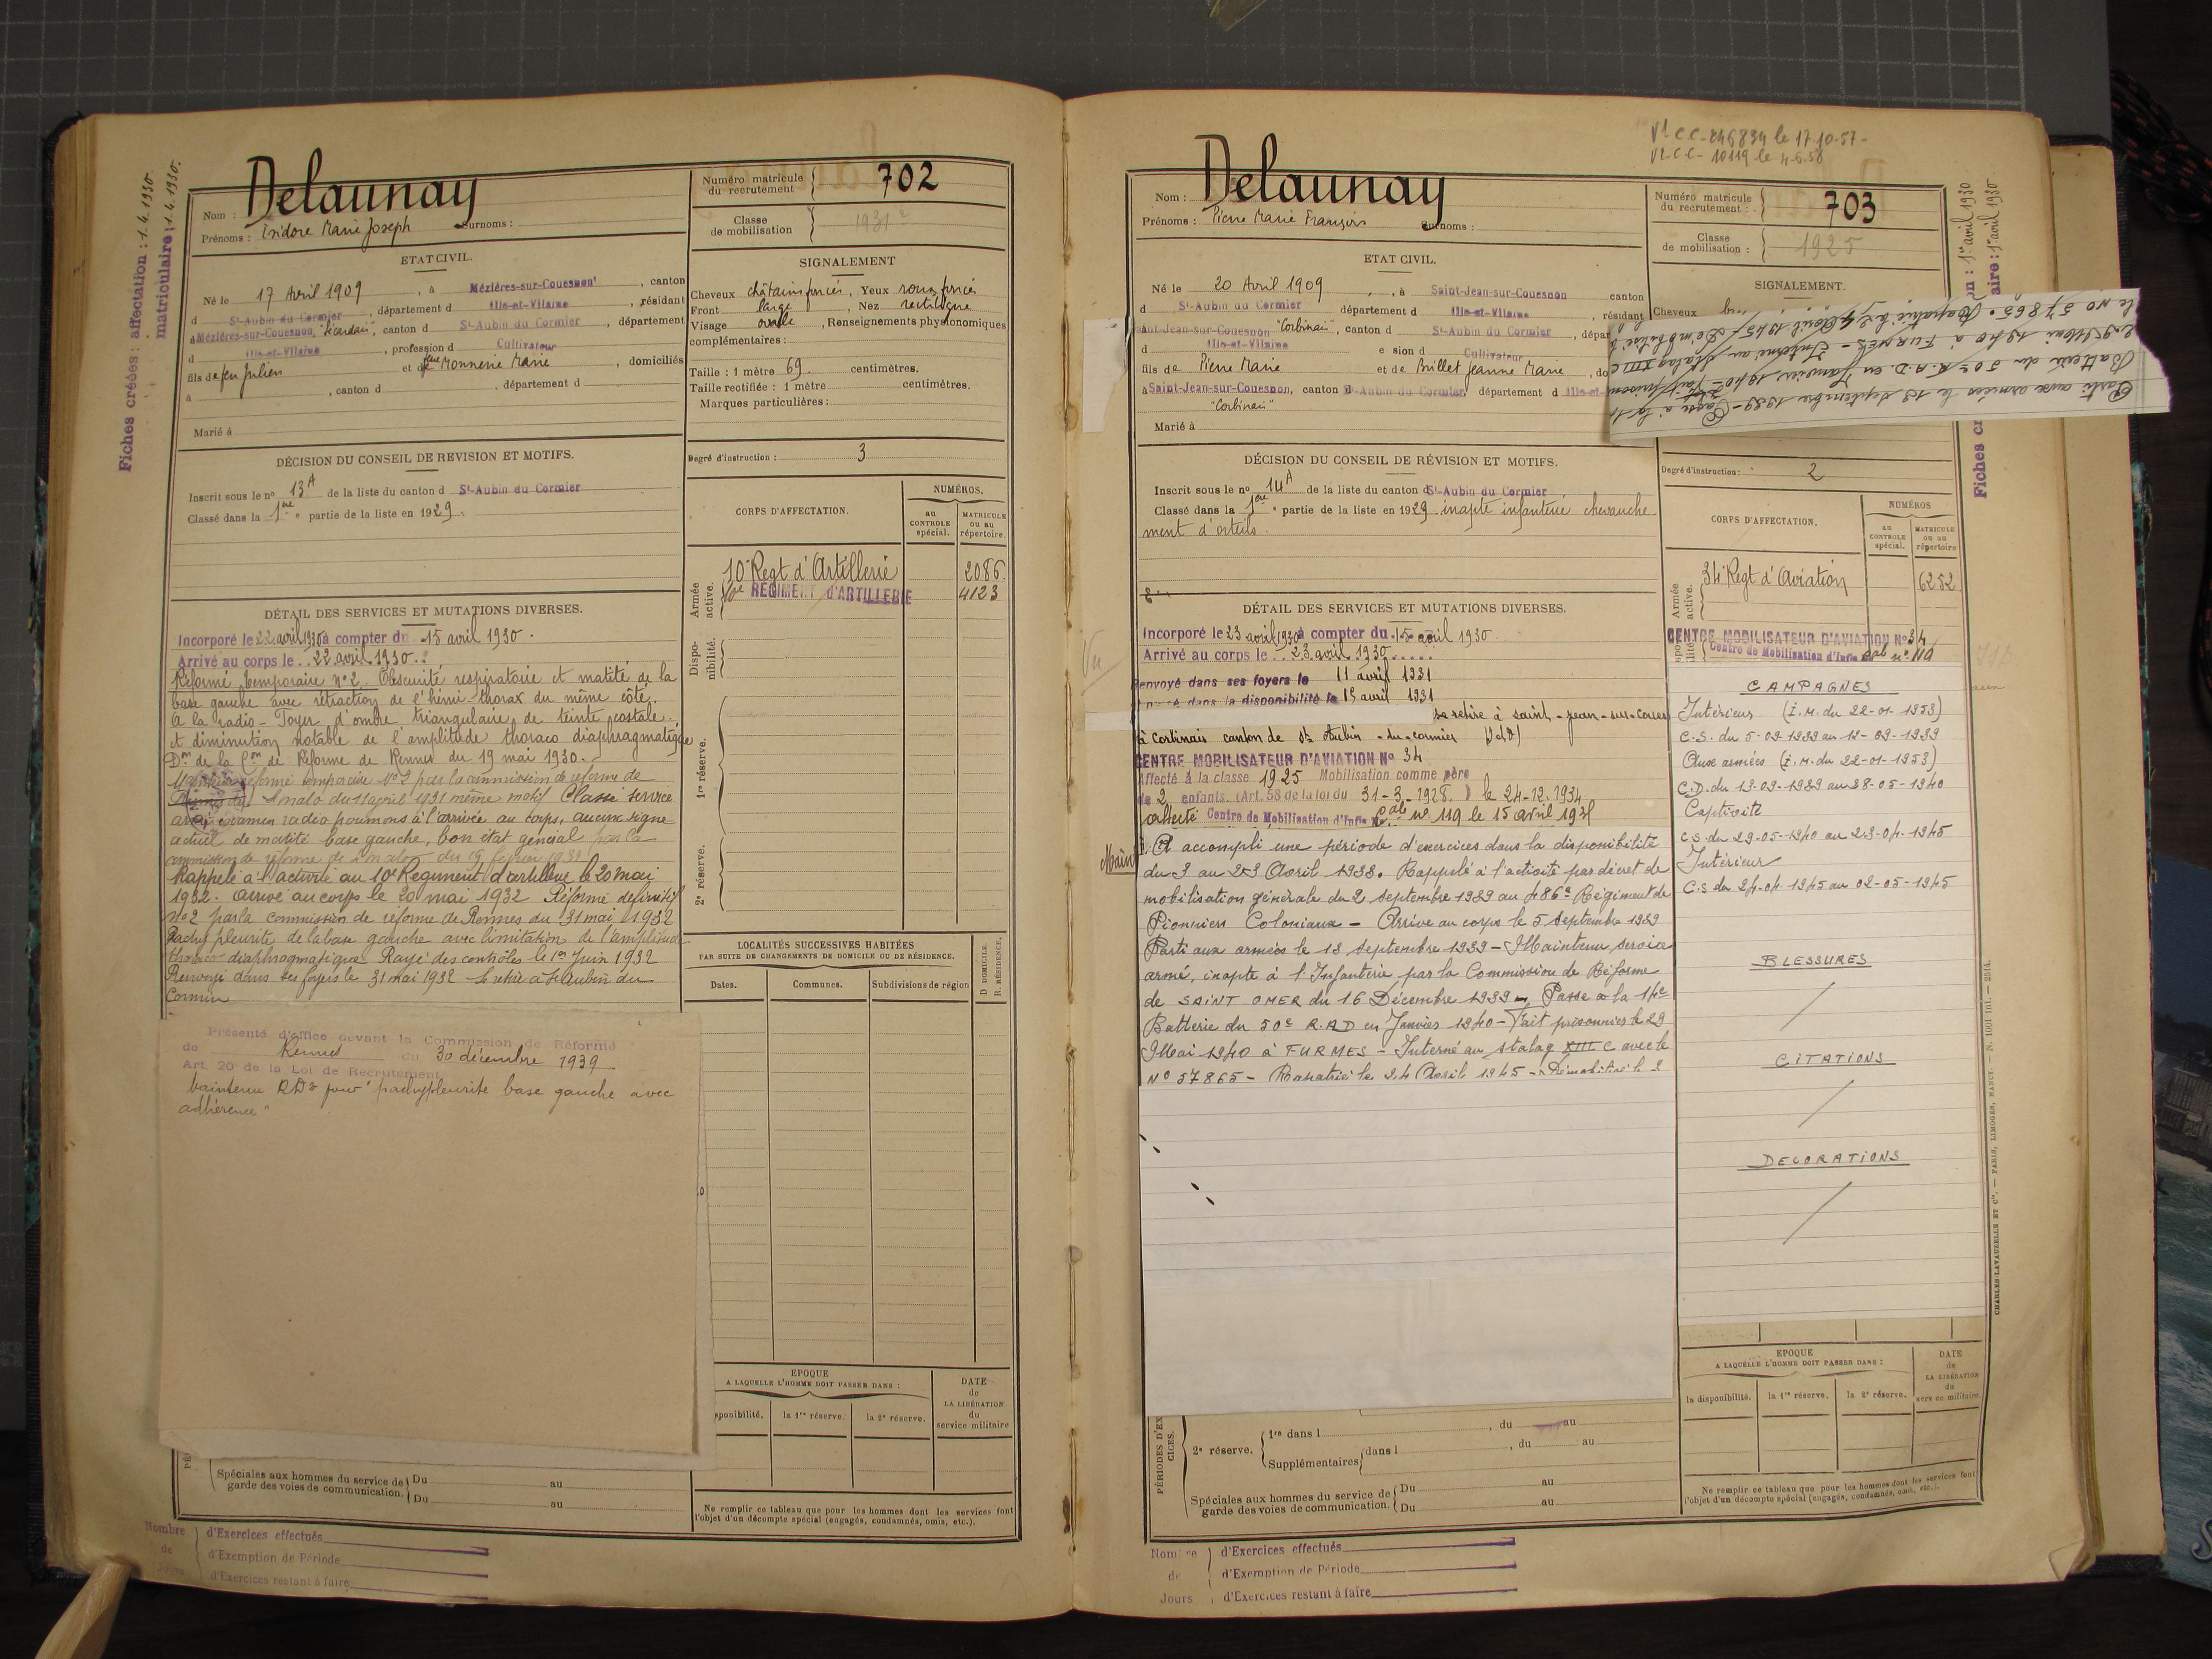 Fiches créées : affectation : 1.4.1930.
matriculaire : 1.4.1930.
Nom : Delaunay
Prénoms : Isidore Marie Joseph Surnoms :
Numéro matricule du recrutement 702
Classe de mobilisation 1931
ETAT CIVIL.
Né le 17 Avril 1909, à Mézières-sur-Couesnon, canton
d St-Aubin du Cormier, département d Ille-et-Vilaine, résidant
à Mézières-sur-Couesnon, canton d St-Aubin du Cormier, département
d Ille-et-Vilaine, profession d Cultivateur
fils de feu Julien et de Monnerie Marie, domiciliés
à , canton d , département d
Marié à
SIGNALEMENT
Cheveux châtains foncés, Yeux roux foncés
Front large, Nez rectiligne
Visage ovale, Renseignements physionomiques
complémentaires :
Taille : 1 mètre 69 centimètres.
Taille rectifiée : 1 mètre centimètres.
Marques particulières :
Degré d'instruction : 3
DÉCISION DU CONSEIL DE REVISION ET MOTIFS.
Inscrit sous le no 13A de la liste du canton d St-Aubin du Cormier
Classé dans la 1ère partie de la liste en 1929.
CORPS D'AFFECTATION.
NUMÉROS.
au CONTROLE spécial.
MATRICULE ou au répertoire.
Armée active.
10e Regt d'Artillerie 2086
10e REGIMENT D'ARTILLERIE 4123
Disponibilité.
1re réserve.
2e réserve.
DÉTAIL DES SERVICES ET MUTATIONS DIVERSES.
Incorporé le 22 avril 1930 à compter du 15 avril 1930.
Arrivé au corps le 22 avril 1930.
Réformé temporaire no 2. Obscurité respiratoire et matité de la
base gauche avec rétraction de l'hémi-thorax du même côté.
A la radio - Foyer d'ombre triangulaire de teinte costale
et diminution notable de l'amplitude thoraco diaphragmatique
Don de la Con de Réforme de Rennes du 19 mai 1930.
réformé temporaire No 2 par la commission de réforme de
St malo du 11 april 1931 même motif Classé service
armé examen radio poumons à l'arrivée au corps, aucun signe
actuel de matité base gauche, bon état général par la
commission de réforme de St malo du 19 février 1932
Rappelé à l'activité au 10e Régiment d'artillerie le 20 mai
1932. arrivé au corps le 20 mai 1932 Réformé définitif
no 2 par la commission de réforme de Rennes du 31 mai 1932
Pachy pleurite de la base gauche avec limitation de l'amplitude
thoraco-diaphragmatique Rayé des contrôles le 1er Juin 1932
Renvoyé dans ses foyers le 31 mai 1932 Se retire à St Aubin du
Cormier
Présenté d'office devant la Commission de Réforme
de Rennes du 30 décembre 1939
Art. 20 de la Loi de Recrutement
Maintenu RD2 pour "pachypleurite base gauche avec
adhérence"
LOCALITÉS SUCCESSIVES HABITÉES
PAR SUITE DE CHANGEMENTS DE DOMICILE OU DE RÉSIDENCE.
Dates. Communes. Subdivisions de région
D. DOMICILE. R. RÉSIDENCE.
EPOQUE
A LAQUELLE L'HOMME DOIT PASSER DANS :
sponibilité. la 1re réserve. la 2e réserve.
DATE de LA LIBÉRATION du service militaire
Spéciales aux hommes du service de garde des voies de communication. Du au
Du au
Ne remplir ce tableau que pour les hommes dont les services font
l'objet d'un décompte spécial (engagés, condamnés, omis, etc.).
Nombre de Jours
d'Exercices effectués
d'Exemption de Période
d'Exercices restant à faire
Vt C.C. 246834 le 17.10.57-
Vt C.C- 10119 le 4.6.58
Nom : Delaunay
Prénoms : Pierre Marie François Surnoms :
Numéro matricule du recrutement : 703
Classe de mobilisation : 1925
ETAT CIVIL.
Né le 20 Avril 1909, à Saint-Jean-sur-Couesnon canton
d St-Aubin du Cormier département d Ille-et-Vilaine, résidant
Saint-Jean-sur-Couesnon "Corbinais", canton d St-Aubin du Cormier, dépar
d Ille-et-Vilaine e sion d Cultivateur
fils de Pierre Marie et de Brillet Jeanne Marie, do
à Saint-Jean-sur-Couesnon, canton d St-Aubin du Cormier, département d Ille-et-
"Corbinais"
Marié à
SIGNALEMENT.
Cheveux
Parti aux armées le 13 septembre 1939 - Passé à la 14e
Batterie du 50e R.A.D. en Janvier 1940 - Fait prisonnier
le 29 Mai 1940 à FURNES - Interné au stalag XIII C
le No 57865. Rapatrié le 24 Avril 1945 - Démobilisé le 2
Degré d'instruction : 2
DÉCISION DU CONSEIL DE RÉVISION ET MOTIFS.
Inscrit sous le no 14A de la liste du canton d St-Aubin du Cormier
Classé dans la 1ère partie de la liste en 1929 inapte infanterie chevauche
ment d'orteils.
CORPS D'AFFECTATION.
NUMÉROS
au CONTROLE spécial.
MATRICULE ou au répertoire
Armée active.
34e Regt d'Aviation 6252
CENTRE MOBILISATEUR D'AVIATION No 34
Centre de Mobilisation d'Infie Cale no 119
DÉTAIL DES SERVICES ET MUTATIONS DIVERSES.
Incorporé le 23 avril 1930 à compter du 15 avril 1930.
Arrivé au corps le 23 avril 1930
Renvoyé dans ses foyers le 11 avril 1931
dans la disponibilité le 15 avril 1931
se retire à saint-jean-sur-coues
à Corbinais canton de St Aubin-du-cormier
CENTRE MOBILISATEUR D'AVIATION No 34
Affecté à la classe 1925 Mobilisation comme père
de 2 enfants. (Art. 58 de la loi du 31-3-1928.) le 24-12-1934
affecté Centre de Mobilisation d'Infie Cale no 119 le 15 avril 193
A accompli une période d'exercices dans la disponibilité
du 3 au 23 Avril 1938. Rappelé à l'activité par décret de
mobilisation générale du 2 septembre 1939 au 486e Régiment de
Pionniers Coloniaux - Arrivé au corps le 5 septembre 1939
Parti aux armées le 13 septembre 1939 - Maintenu service
armé, inapte à l'Infanterie par la Commission de Réforme
de SAINT OMER du 16 Décembre 1939 -, Passé à la 14e
Batterie du 50e R.A.D en Janvier 1940 - Fait prisonnier le 29
Mai 1940 à FURNES - Interné au stalag XIII C avec le
No 57865 - Rapatrié le 24 Avril 1945 - Démobilisé le 2
CAMPAGNES
Intérieur (I.M. du 22-01-1953)
C.S. du 5-09-1939 au 12-09-1939
Aux armées (I.M. du 22-01-1953)
C.D. du 13-09-1939 au 28-05-1940
Captivité
C.S. du 29-05-1940 au 23-04-1945
Intérieur
C.S. du 24-04-1945 au 02-05-1945
BLESSURES
CITATIONS
DECORATIONS
CHARLES-LAVAUZELLE ET Cie. — PARIS, LIMOGES, NANCY. — N. 1001 Int. — 2514.
EPOQUE
A LAQUELLE L'HOMME DOIT PASSER DANS :
la disponibilité. la 1re réserve. la 2e réserve.
DATE de LA LIBÉRATION du service militaire
2e réserve. 1re dans l , du au
Supplémentaires dans l , du au
Spéciales aux hommes du service de garde des voies de communication. Du au
Du au
Ne remplir ce tableau que pour les hommes dont les services font
l'objet d'un décompte spécial (engagés, condamnés, omis, etc.).
Nombre de Jours
d'Exercices effectués
d'Exemption de Période
d'Exercices restant à faire